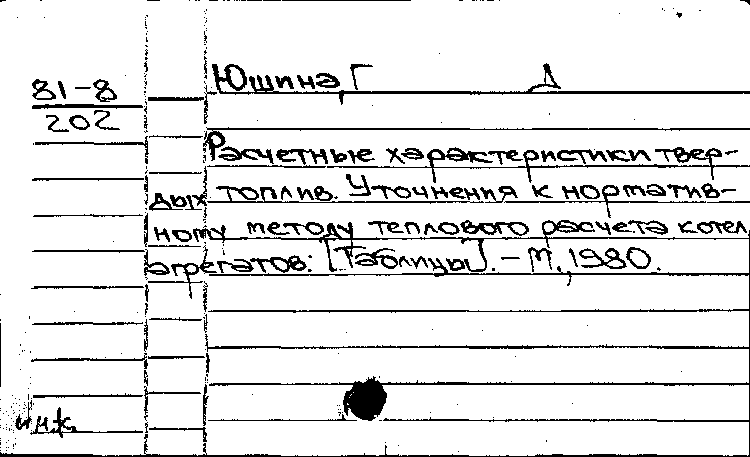 Юшина, Г Д
81-8
202
Расчетные характеристики твер-
дых топлив. Уточнения к норматив-
ному методу теплового расчета котел
агрегатов: [Таблицы]. - М., 1980.
инж.